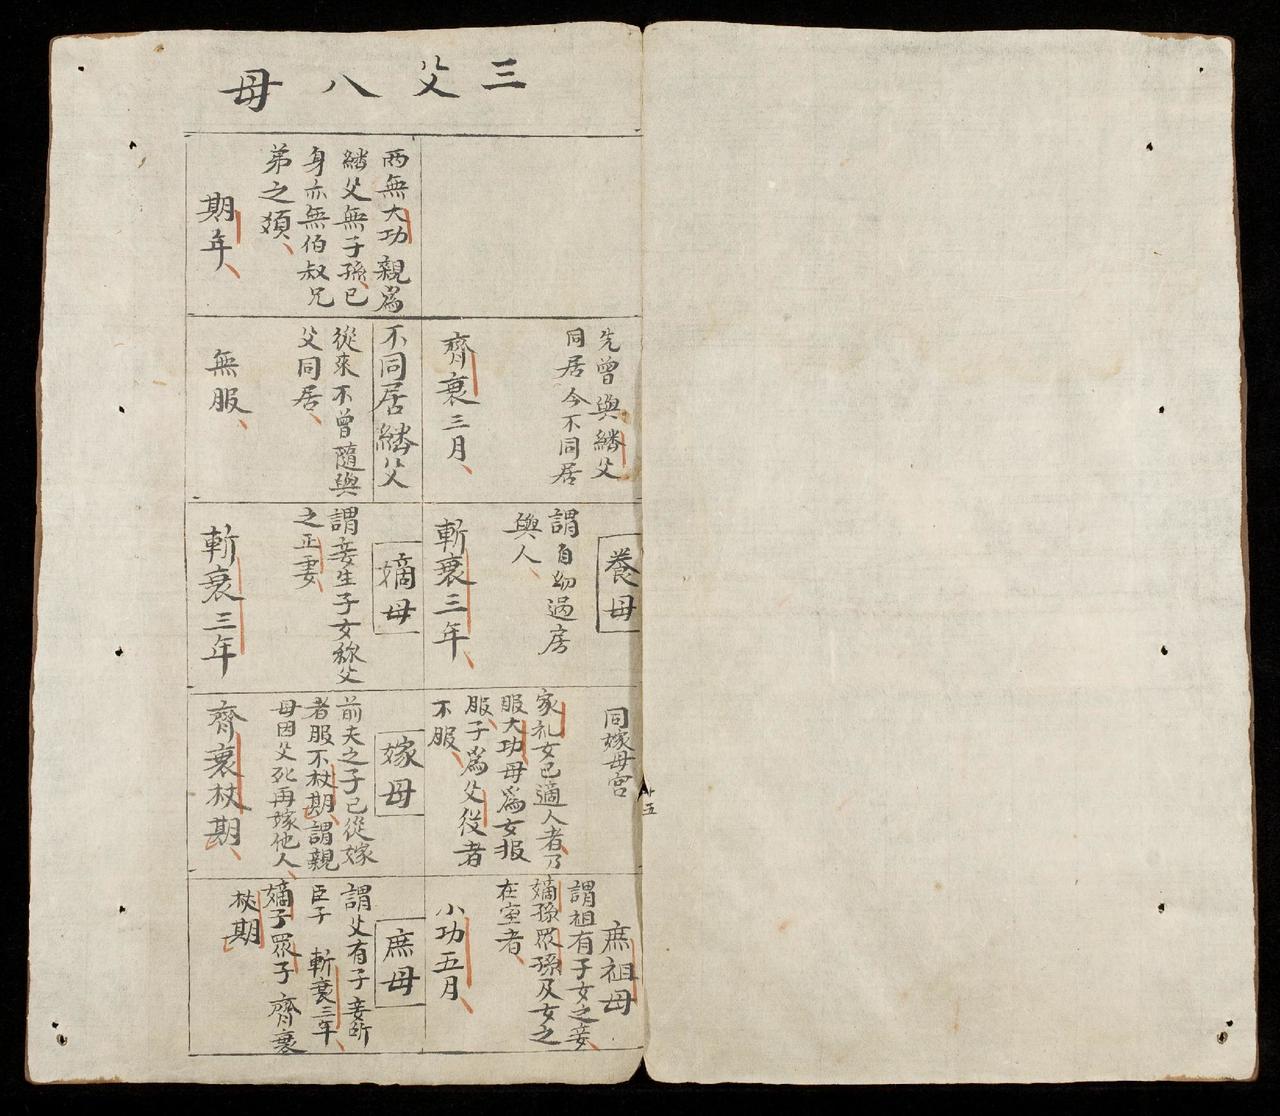 三父八母
兩無大功親為
繼父無子孫己
身亦無伯叔兄
弟之類
期年
先曾與繼父
同居今不同居
齊衰三月
不同居繼父
從來不曾隨與
父同居
無服
養母
謂自幼過房
與人
斬衰三年
嫡母
謂妾生子女稱父
之正妻
斬衰三年
同嫁母宮
家礼女已適人者乃
服大功母為女报
服子為父役者
不服
嫁母
前夫之子已從嫁
者服不杖期謂親
母因父死再嫁他人
齊衰杖期
庶祖母
謂祖有子女之妾
嫡孫眾孫及女之
在室者
小功五月
庶母
謂父有子妾所
臣子 斬衰三年
嫡子眾子 齊衰
杖期
廿五